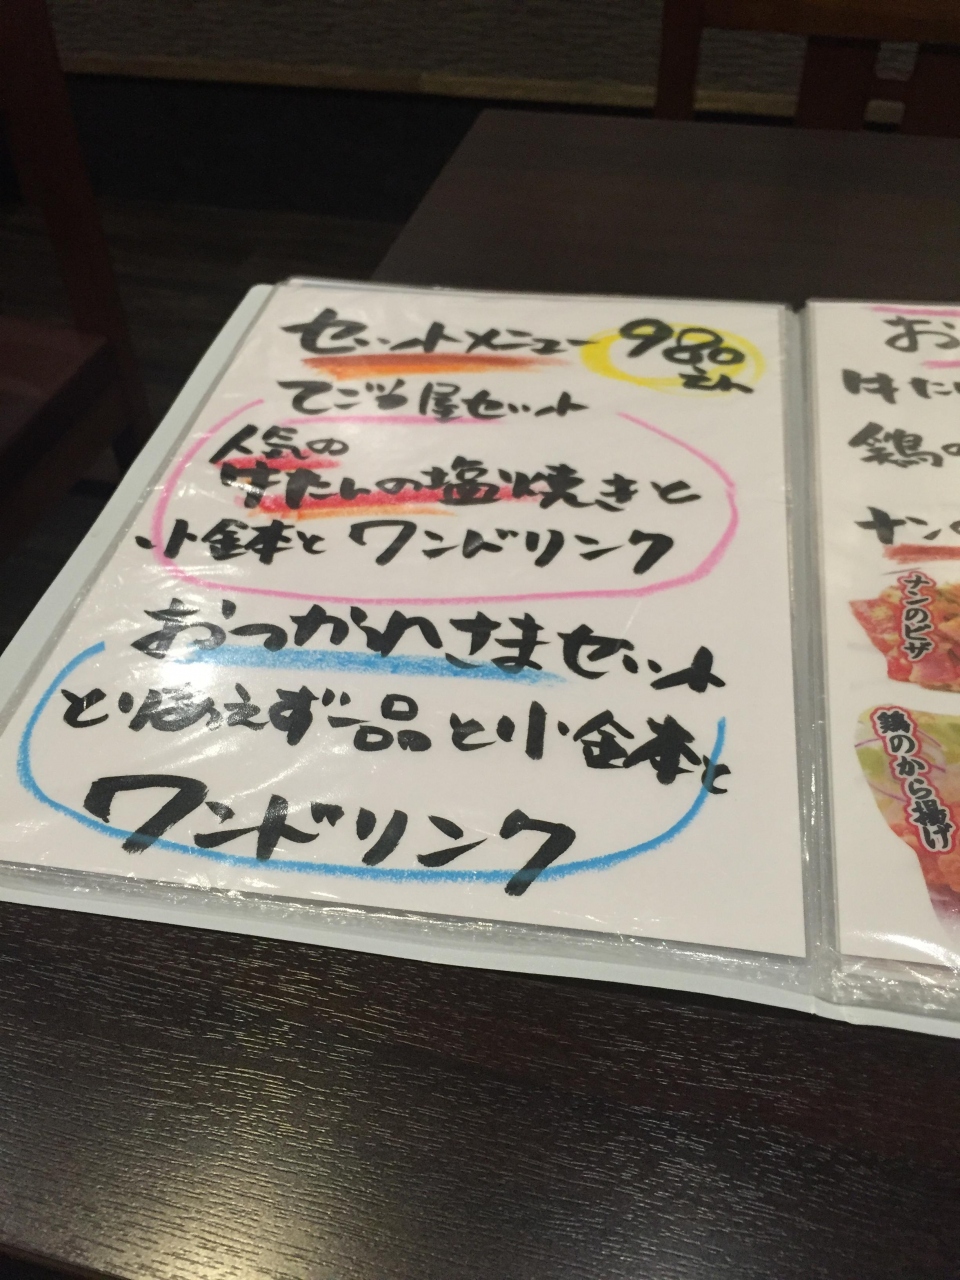 セットメニュー 980えん
てごろ屋セット
人気の
牛たんの塩焼きと
小金本と ワンドリンク
おつかれさまセット
とりあえず一品と小金本と
ワンドリンク
お
牛た
鶏の
ナン
ナンのピザ
鶏のから揚げ